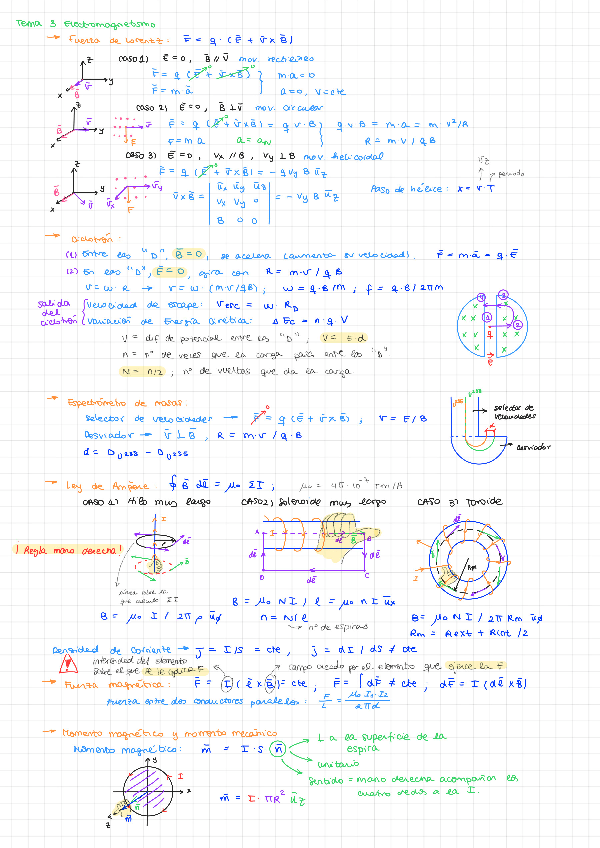 Tema 3 Electromagnetismo
→ Fuerza de Lorentz: F̄ = q · (Ē + v̄ x B̄)
CASO 1) Ē = 0, B̄ // v̄ mov. rectilíneo
F̄ = q (Ē + v̄ x B̄) m a = 0
F̄ = m ā a = 0, v = cte
CASO 2) Ē = 0, B̄ ⊥ v̄ mov. circular
F̄ = q (Ē + v̄ x B̄) = q v · B q v B = m · a = m v²/R
F = m a a = aN R = m v / q B
CASO 3) Ē = 0, vx // B, vy ⊥ B mov. helicoidal
F̄ = q (Ē + v̄ x B̄) = - q vy B ūz
v̄ x B̄ = | ūx ūy ūz | = - vy B ūz
vx vy 0
B 0 0
Paso de hélice: x = v · T
periodo
→ Ciclotrón:
(1) Entre las "D", B̄ = 0, se acelera (aumenta su velocidad). F̄ = m · ā = q · Ē
(2) En las "D", Ē = 0, gira con R = m · v / q B
v = ω · R → v = ω · (m v / q B); ω = q · B / m; f = q · B / 2πm
Salida del ciclotrón
Velocidad de escape: vesc = ω · RD
Variación de Energía Cinética: Δ Ec = n · q V
V = dif de potencial entre las "D"; V = E · d
n = nº de veces que la carga pasa entre las "D"
N = n/2; nº de vueltas que da la carga
→ Espectrómetro de masas:
Selector de velocidades → F̄ = q (Ē + v̄ x B̄), v = E / B
Desviador → v̄ ⊥ B̄, R = m · v / q · B
d = D U238 - D U235
selector de velocidades
desviador
→ Ley de Ampère ∮ B̄ dl̄ = μ₀ Σ I; μ₀ = 4π · 10⁻⁷ Tm/A
CASO 1) Hilo muy largo CASO 2) Solenoide muy largo CASO 3) Toroide
¡Regla mano derecha!
B = μ₀ I / 2π ρ ūφ
B = μ₀ N I / l = μ₀ n I ūx
n = N / l
→ nº de espiras
B = μ₀ N I / 2π Rm ūφ
Rm = Rext + Rint / 2
Densidad de corriente → j = I / S = cte, j = dI / dS ≠ cte
intensidad del elemento sobre el que se ejerce F
campo creado por el elemento que ejerce la F
→ Fuerza magnética: F̄ = I (l̄ x B̄) = cte, F̄ = ∫ dF̄ ≠ cte, dF̄ = I (dl̄ x B̄)
Fuerza entre dos conductores paralelos: F/L = μ₀ I₁ · I₂ / 2πd
→ Momento magnético y momento mecánico
Momento magnético: m̄ = I · S n̄
⊥ a la superficie de la espira
unitario
sentido = mano derecha acompañar los cuatro dedos a la I.
m̄ = I · πR² ūz